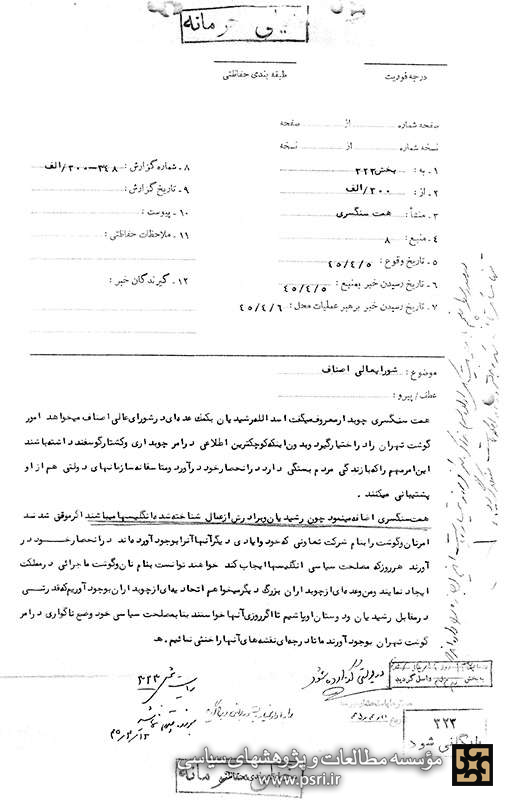 خیلی محرمانه
درجه فوریت
طبقه بندی حفاظتی
صفحه شماره از صفحه
نسخه شماره از نسخه
۱ - به : بخش ۳۲۲
۲ - از : ۳۰۰/الف
۳ - منشأ : همت سنگسری
۴ - منبع : ۸
۵ - تاریخ وقوع : ۴۵/۴/۵
۶ - تاریخ رسیدن خبر بمنبع : ۴۵/۴/۵
۷ - تاریخ رسیدن خبر برهبر عملیات محل : ۴۵/۴/۶
۸ - شماره گزارش : ۳۴۸-۳۰۰/الف
۹ - تاریخ گزارش :
۱۰ - پیوست :
۱۱ - ملاحظات حفاظتی :
۱۲ - گیرندگان خبر :
موضوع : شورایعالی اصناف
عطف / پیرو :
همت سنگسری چوبدار معروف میگفت اسدالله رشیدیان بکمک عده‌ای در شورای عالی اصناف میخواهد امور
گوشت تهران را در اختیار گیرد و بدون اینکه کوچکترین اطلاعی در امر چوبداری و کشتار گوسفند داشته باشند
این امر مهم را که با زندگی مردم بستگی دارد در انحصار خود درآورد و متاسفانه سازمانهای دولتی هم از او
پشتیبانی میکنند .
همت سنگسری اضافه مینمود چون رشیدیان و برادرش از عمال شناخته شده انگلیسها میباشند اگر موفق شدند
امر نان و گوشت را بنام شرکت تعاونی که خود و ایادی دیگر آنها آنرا بوجود آورده‌اند در انحصار خود در
آورند هر روز که مصلحت سیاسی انگلیسها ایجاب کند خواهند توانست بنام نان و گوشت ماجرائی در مملکت
ایجاد نمایند و من و عده‌ای از چوبداران بزرگ دیگر میخواهیم اتحادیه‌ای از چوبداران بوجود آوریم که قدرتی
در مقابل رشیدیان و دوستان او باشیم تا اگر روزی آنها خواستند بنا به مصلحت سیاسی خود وضع ناگواری در امر
گوشت تهران بوجود آورند ما تا درجه‌ای نقشه‌های آنها را خنثی نمائیم . ه
در بولتن گزارده شود
۳۲۲
بایگانی شود
مؤسسه مطالعات و پژوهشهای سیاسی
www.psri.ir
خیلی محرمانه